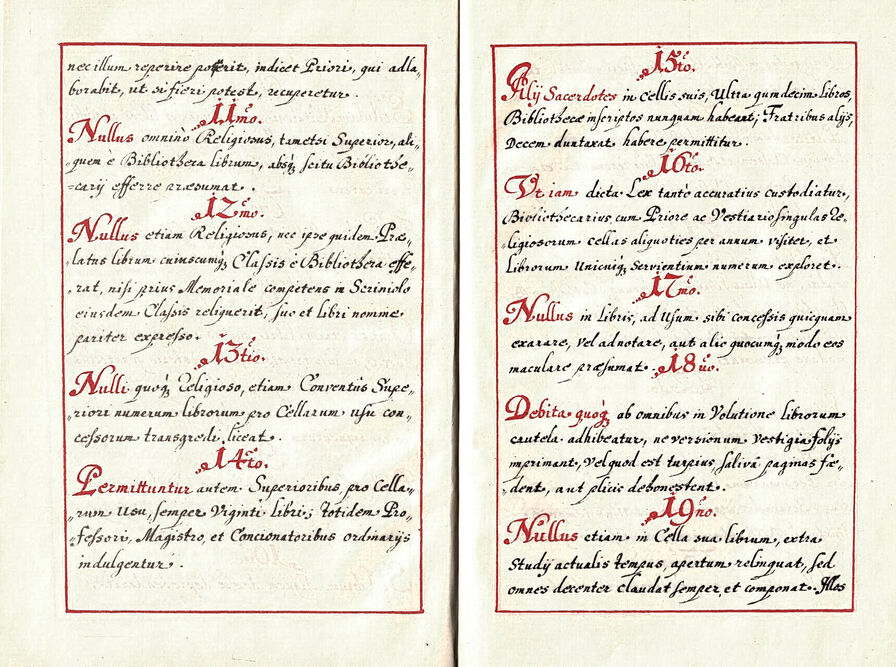 nec illum reperire poterit, indicet Priori, qui adla,
borabit, ut si fieri potest, recuperetur.
11mo.
Nullus omninò Religiosus, tametsi Superior, ali,
quem è Bibliotheca librum, absq; scitu Bibliothe,
carij efferre præsumat.
12mo.
Nullus etiam Religiosus, nec ipse quidem Præ,
latus librum cuiuscumq; Classis è Bibliotheca effe,
rat, nisi prius Memoriale competens in Scriniolo
eiusdem Classis reliquerit, suo et libri nomine
pariter expresso.
13tio.
Nulli quoq; Religioso, etiam Conventûs Supe,
riori numerum librorum pro Cellarum usu con,
cessorum transgredi liceat.
14to.
Permittuntur autem Superioribus, pro Cella,
rum Usu, semper Viginti libri; totidem Pro,
fessori, Magistro, et Concionatoribus ordinarijs
indulgentur.
15to.
Alij Sacerdotes in Cellis suis, Ultra quindecim Libros,
Bibliothecæ inscriptos nunquam habeant; Fratribus alijs,
Decem duntaxat habere permittitur.
16to.
Ut iam dicta Lex tantò accuratius custodiatur,
Bibliothecarius, cum Priore ac Vestiario singulas Re,
ligiosorum cellas aliquoties per annum visitet, et
Librorum Unicuiq; Servientium numerum exploret.
17mo.
Nullus in Libris, ad Usum sibi concessis quicquam
exarare, vel adnotare, aut alio quocumq; modo eos
maculare præsumat. 18vo.
Debita quoq; ab omnibus in Volutione librorum
cautela adhibeatur, ne versionum vestigia folijs
imprimant, vel quod est turpius, salivâ paginas fæ,
dent, aut plicis dehonestent.
19no.
Nullus etiam in Cella sua librum, extra
Studij actualis tempus, apertum relinquat, sed
omnes decenter claudat semper, et componat. Illos